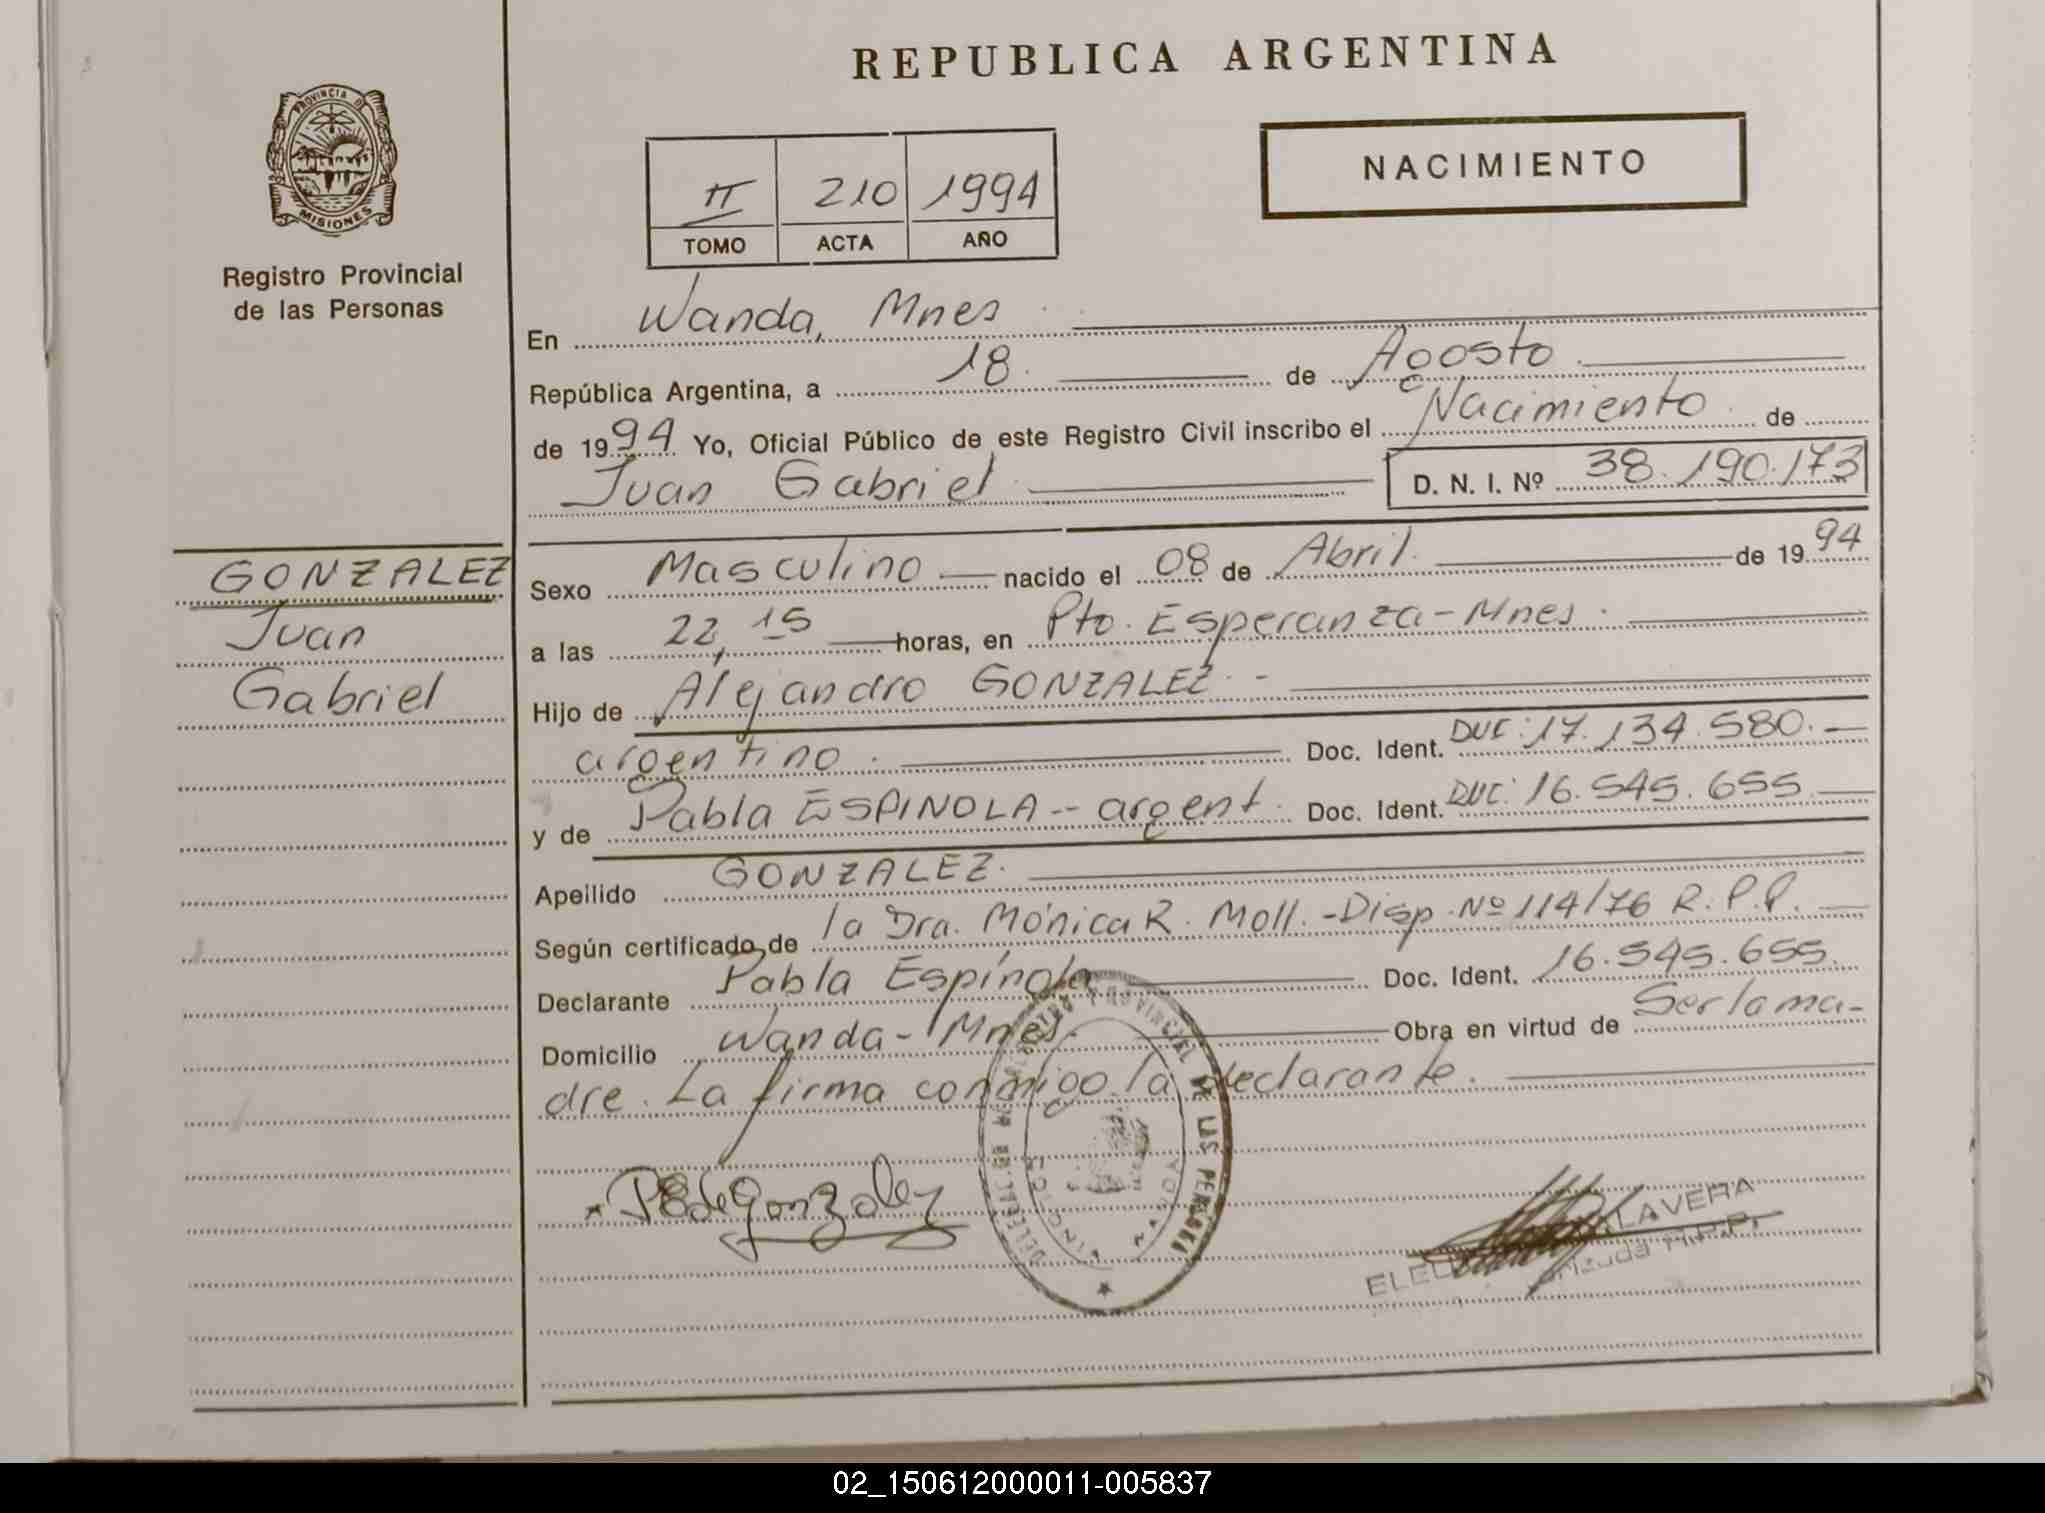 REPUBLICA ARGENTINA
PROVINCIA DE
MISIONES
Registro Provincial
de las Personas
NACIMIENTO
II 210 1994
TOMO ACTA AÑO
En Wanda, Mnes.
República Argentina, a 18. de Agosto.
de 1994 Yo, Oficial Público de este Registro Civil inscribo el Nacimiento de
Juan Gabriel. D. N. I. Nº 38.190.173
GONZALEZ
Juan
Gabriel
Sexo Masculino nacido el 08 de Abril. de 1994
a las 22,15 horas, en Pto. Esperanza-Mnes.
Hijo de Alejandro GONZALEZ.-
argentino. Doc. Ident. DUC: 17.134.580.
y de Pabla ESPINOLA -- argent. Doc. Ident. DUC: 16.545.655
Apellido GONZALEZ.
Según certificado de la Dra. Mónica R. Moll.-Disp.Nº 114/76 R.P.P.
Declarante Pabla Espínola Doc. Ident. 16.545.655.
Domicilio Wanda-Mnes. Obra en virtud de Ser la ma-
dre. La firma conmigo la declarante.
PEdeGonzalez
PROVINCIAL DE LAS PERSONAS
WANDA